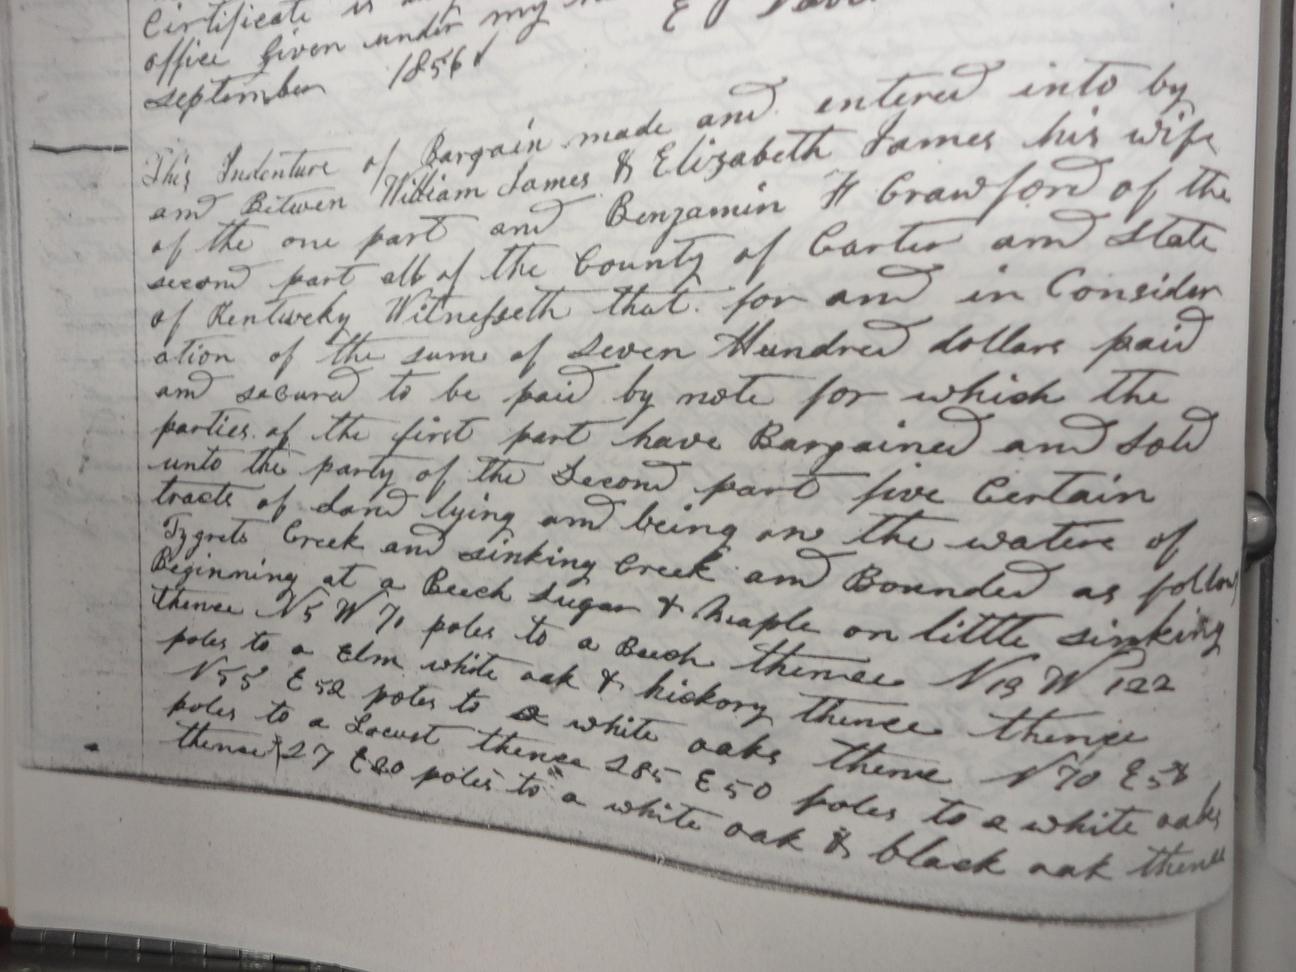 Certificate is
office Given under my
September 1856
This Indenture of Bargain made and entered into by
and Betwen William James & Elizabeth James his wife
of the one part and Benjamin H Crawford of the
second part all of the County of Carter and State
of Kentucky Witnesseth that for and in Consider
ation of the sum of Seven Hundred dollars paid
and secured to be paid by note for which the
parties of the first part have Bargained and Sold
unto the party of the Second part five Certain
tracts of Land lying and being on the waters of
Tygrets Creek and sinking Creek and Bounded as follows
Beginning at a Beech Sugar & Maple on little sinking
thence N5 W 70 poles to a Beech thence N19 W 122
poles to a Elm white oak & hickory thence thence
N55 E52 poles to a white oaks thence N70 E58
poles to a Locust thence S85 E50 poles to a white oaks
thense S27 E20 poles to a white oak & black oak thence